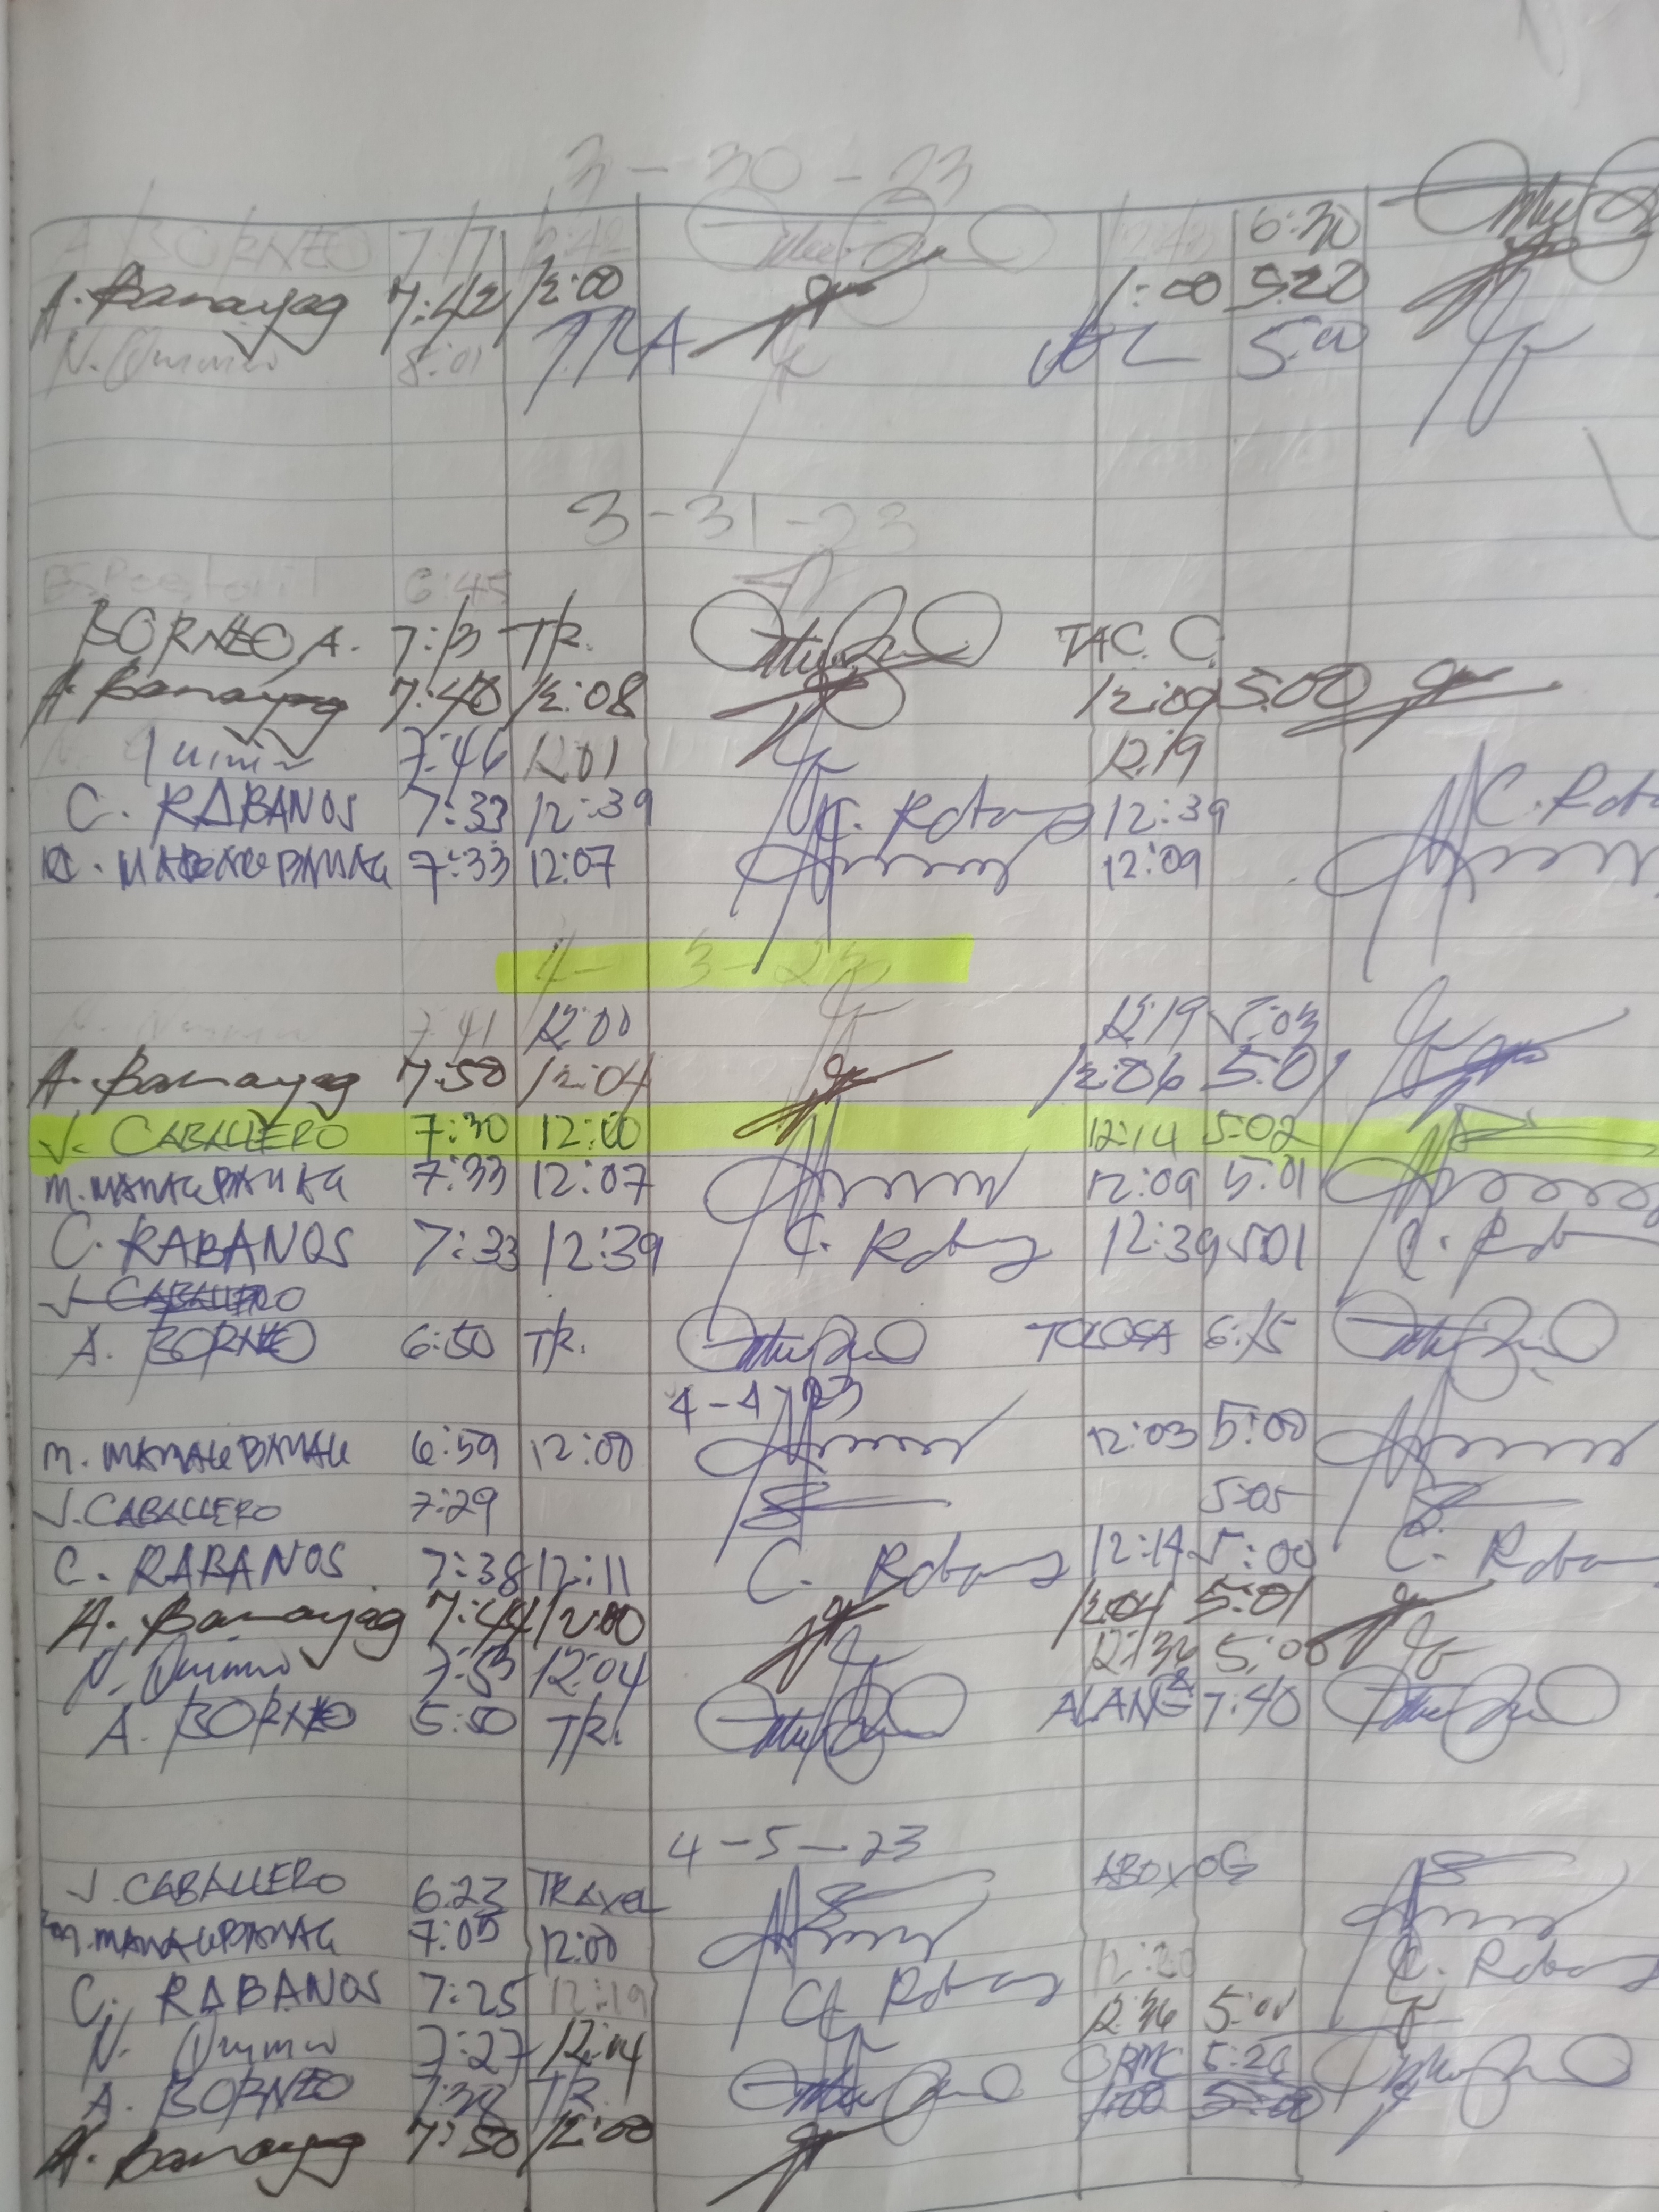 3-30-23
A. BORNEO 7:17 6:30
A. Banayag 7:42 12:00 1:00 5:20
N. 8:01 TRA VEL 5:00
3-31-23
6:45
BORNEO A. 7:13 TR. TAC. C.
A. Banayag 7:40 12:08 12:09 5:00
7:46 12:01 12:19
C. RABANOS 7:33 12:39 12:39
7:33 12:07 12:09
4-3-23
7:41 12:00 12:19 5:03
A. Banayag 7:50 12:04 12:06 5:01
J. CABALLERO 7:30 12:00 12:14 5:02
M. 7:33 12:07 12:09 5:01
C. RABANOS 7:33 12:39 12:39 5:01
J. CABALLERO
A. BORNEO 6:50 TR. TOLOSA 6:15
4-4-23
M. 6:59 12:00 12:03 5:00
J. CABALLERO 7:29 5:05
C. RABANOS 7:38 12:11 12:14 5:00
A. Banayag 7:44 12:00 12:04 5:01
N. 7:53 12:04 12:36 5:00
A. BORNEO 5:50 TR. 7:40
4-5-23
J. CABALLERO 6:23 TRAVEL ABUYOG
M. 7:05 12:00
C. RABANOS 7:25 12:19 12:20
N. 7:27 12:04 12:36 5:00
A. BORNEO TR. 5:20
A. Banayag 7:50 12:00 1:00 5:00